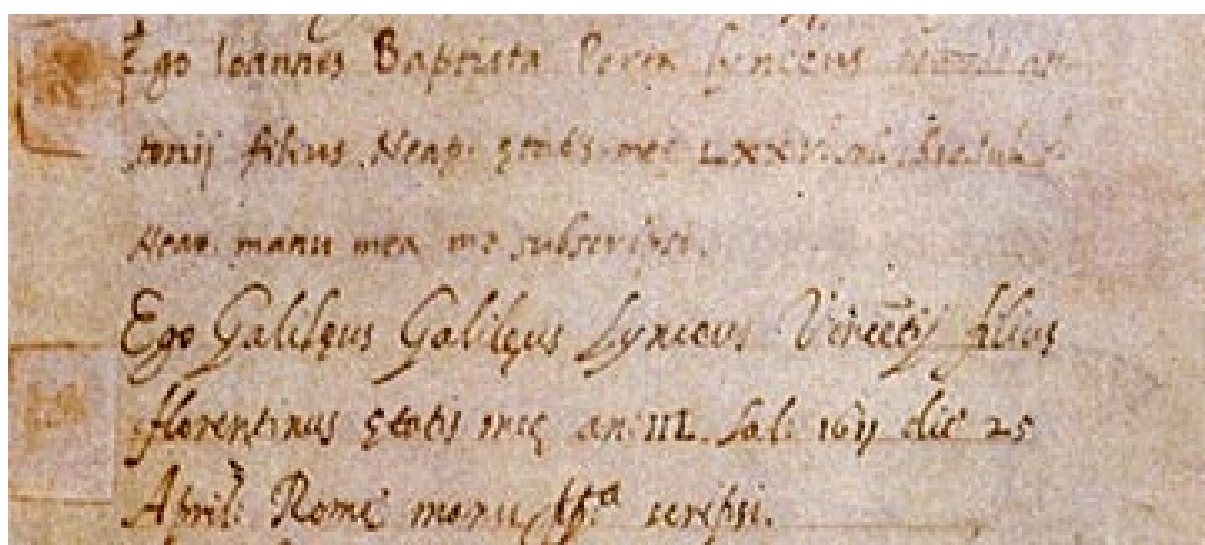 Ego Ioannes Baptista Porta Lynceus
tonij filius Neap. ętatis meę LXXV
Neap. manu mea me subscripsi.
Ego Galilęus Galilęus Lynceus Vincētij filius
florentinus ętatis meę an: IIL. Sal: 1611 die 25
April: Romę manu pp.a scripsi.